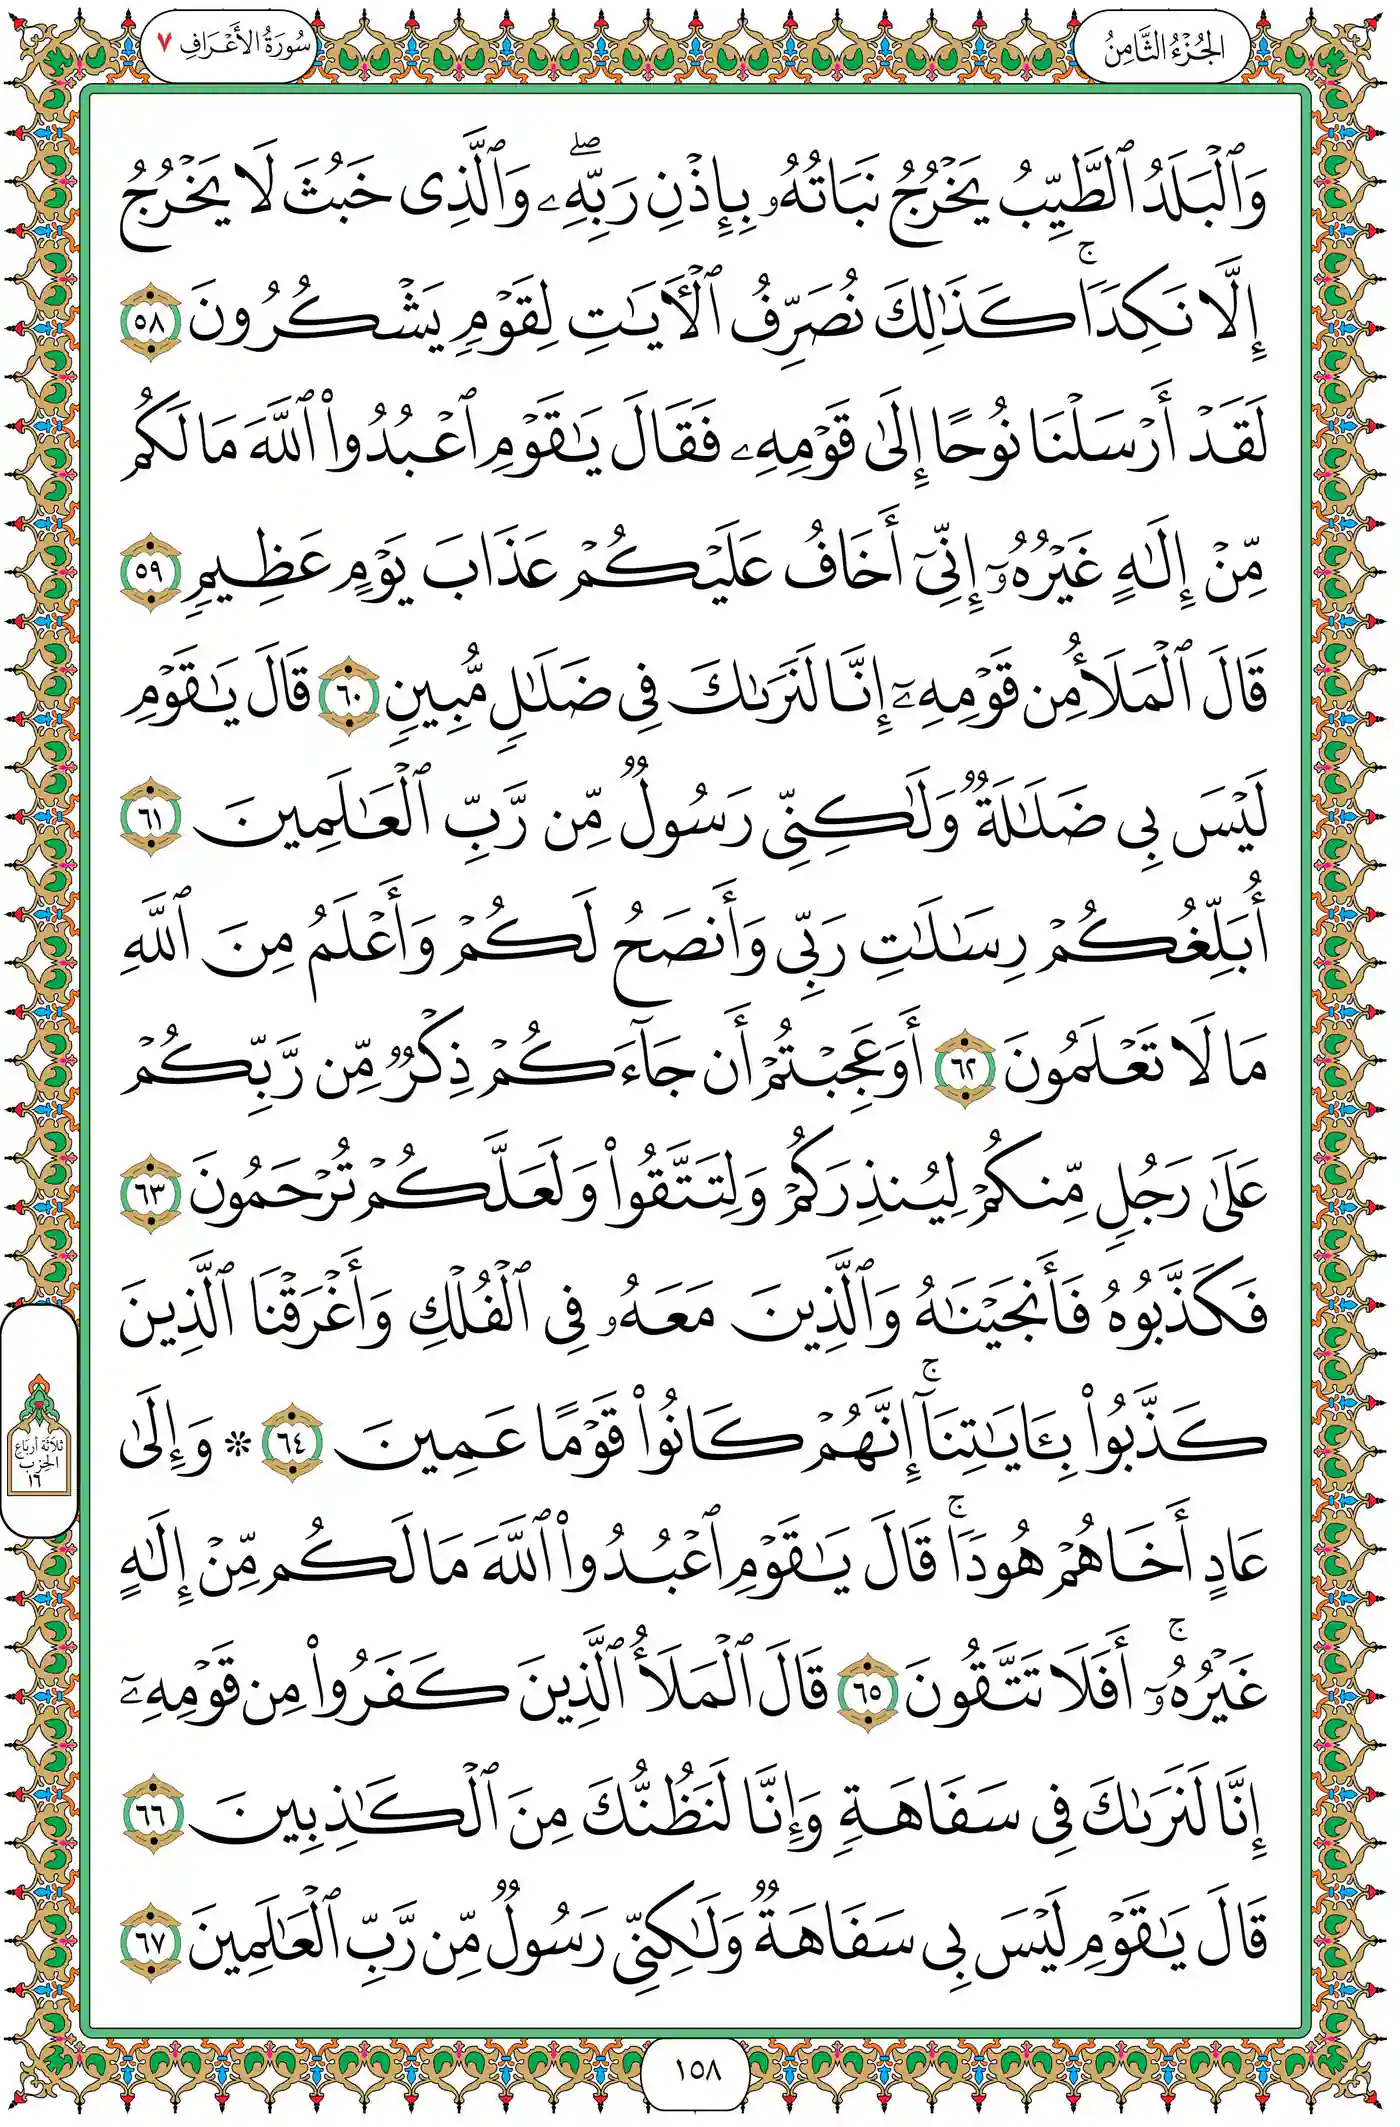 الجُزْءُ الثَّامِنُ
سُورَةُ الأَعْرَافِ ٧
وَٱلْبَلَدُ ٱلطَّيِّبُ يَخْرُجُ نَبَاتُهُۥ بِإِذْنِ رَبِّهِۦۖ وَٱلَّذِى خَبُثَ لَا يَخْرُجُ
إِلَّا نَكِدًاۚ كَذَٰلِكَ نُصَرِّفُ ٱلْأٓيَٰتِ لِقَوْمٍ يَشْكُرُونَ ٥٨
لَقَدْ أَرْسَلْنَا نُوحًا إِلَىٰ قَوْمِهِۦ فَقَالَ يَٰقَوْمِ ٱعْبُدُوا۟ ٱللَّهَ مَا لَكُم
مِّنْ إِلَٰهٍ غَيْرُهُۥٓ إِنِّىٓ أَخَافُ عَلَيْكُمْ عَذَابَ يَوْمٍ عَظِيمٍ ٥٩
قَالَ ٱلْمَلَأُ مِن قَوْمِهِۦٓ إِنَّا لَنَرَىٰكَ فِى ضَلَٰلٍ مُّبِينٍ ٦٠ قَالَ يَٰقَوْمِ
لَيْسَ بِى ضَلَٰلَةٌ وَلَٰكِنِّى رَسُولٌ مِّن رَّبِّ ٱلْعَٰلَمِينَ ٦١
أُبَلِّغُكُمْ رِسَٰلَٰتِ رَبِّى وَأَنصَحُ لَكُمْ وَأَعْلَمُ مِنَ ٱللَّهِ
مَا لَا تَعْلَمُونَ ٦٢ أَوَعَجِبْتُمْ أَن جَآءَكُمْ ذِكْرٌ مِّن رَّبِّكُمْ
عَلَىٰ رَجُلٍ مِّنكُمْ لِيُنذِرَكُمْ وَلِتَتَّقُوا۟ وَلَعَلَّكُمْ تُرْحَمُونَ ٦٣
فَكَذَّبُوهُ فَأَنجَيْنَٰهُ وَٱلَّذِينَ مَعَهُۥ فِى ٱلْفُلْكِ وَأَغْرَقْنَا ٱلَّذِينَ
كَذَّبُوا۟ بِـَٔايَٰتِنَآۚ إِنَّهُمْ كَانُوا۟ قَوْمًا عَمِينَ ٦٤ * وَإِلَىٰ
ثلاثة أرباع
الحزب
١٦
عَادٍ أَخَاهُمْ هُودًاۚ قَالَ يَٰقَوْمِ ٱعْبُدُوا۟ ٱللَّهَ مَا لَكُم مِّنْ إِلَٰهٍ
غَيْرُهُۥٓۚ أَفَلَا تَتَّقُونَ ٦٥ قَالَ ٱلْمَلَأُ ٱلَّذِينَ كَفَرُوا۟ مِن قَوْمِهِۦٓ
إِنَّا لَنَرَىٰكَ فِى سَفَاهَةٍ وَإِنَّا لَنَظُنُّكَ مِنَ ٱلْكَٰذِبِينَ ٦٦
قَالَ يَٰقَوْمِ لَيْسَ بِى سَفَاهَةٌ وَلَٰكِنِّى رَسُولٌ مِّن رَّبِّ ٱلْعَٰلَمِينَ ٦٧
١٥٨